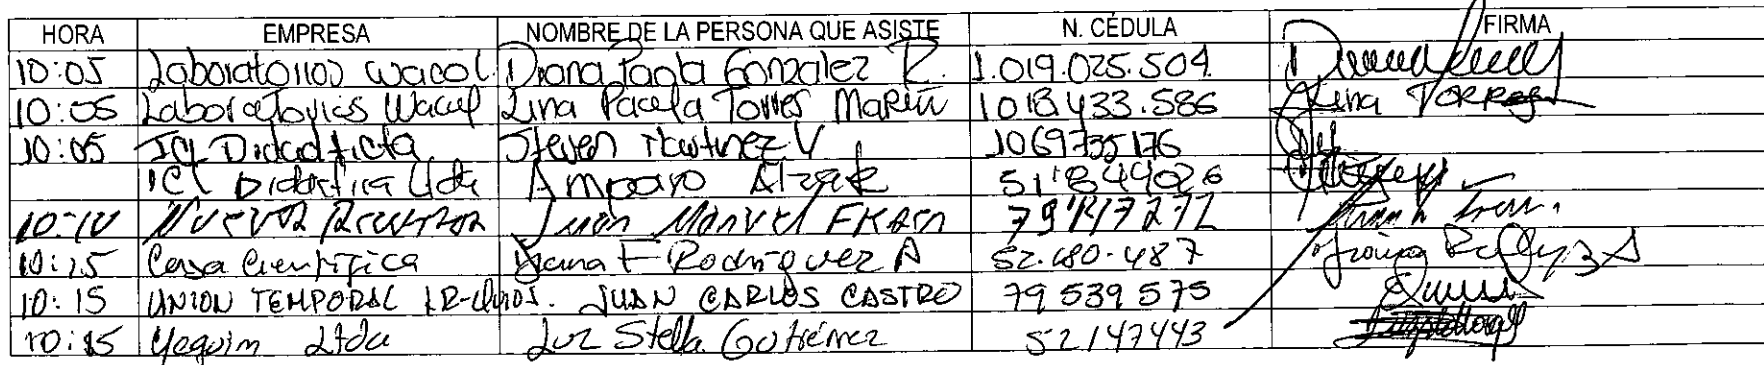 HORA EMPRESA NOMBRE DE LA PERSONA QUE ASISTE N. CÉDULA FIRMA
10:05 Laboratorios Wacol. Diana Paola Gonzalez R. 1.019.025.504
10:05 Laboratorios Wacol Lina Paola Torres Marin 1018.433.586 Lina Torres
10:05 ICL Didactica Steven Martinez V 1069735176
ICL Didactica Ltda Amparo 51'844026
10:10 Juan Manuel
10:15 Casa Cientifica F Rodriguez A 52.480.487
10:15 UNION TEMPORAL JUAN CARLOS CASTRO 79 539 575
10:15 Yequim Ltda Luz Stella Gutiérrez 52147443